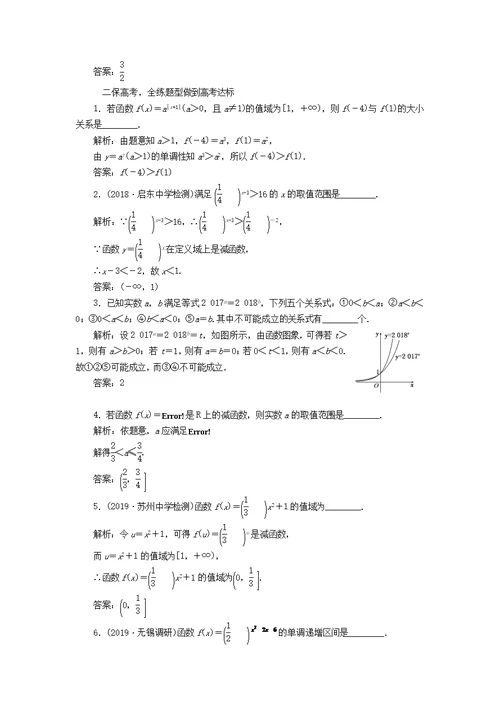 答案：3/2
二保高考，全练题型做到高考达标
1．若函数 f(x)＝a|x+1|(a＞0，且 a≠1)的值域为[1，＋∞)，则 f(－4)与 f(1)的大小
关系是________．
解析：由题意知 a＞1，f(－4)＝a³，f(1)＝a²，
由 y＝aˣ(a＞1)的单调性知 a³＞a²，所以 f(－4)＞f(1)．
答案：f(－4)＞f(1)
2．(2018·启东中学检测)满足(1/4)x－3＞16 的 x 的取值范围是________．
解析：∵(1/4)x－3＞16，∴(1/4)x－3＞(1/4)－2，
∵函数 y＝(1/4)x在定义域上是减函数，
∴x－3＜－2，故 x＜1.
答案：(－∞，1)
3．已知实数 a，b 满足等式 2 017ᵃ＝2 018ᵇ，下列五个关系式：①0＜b＜a；②a＜b＜
0；③0＜a＜b；④b＜a＜0；⑤a＝b.其中不可能成立的关系式有________个．
解析：设 2 017ᵃ＝2 018ᵇ＝t，如图所示，由函数图象，可得若 t＞
1，则有 a＞b＞0；若 t＝1，则有 a＝b＝0；若 0＜t＜1，则有 a＜b＜0.
故①②⑤可能成立，而③④不可能成立．
y
y=2 018ˣ
y=2 017ˣ
1
O
x
答案：2
4．若函数 f(x)＝Error!是 R 上的减函数，则实数 a 的取值范围是________．
解析：依题意，a 应满足Error!
解得2/3＜a≤3/4.
答案：(2/3，3/4]
5．(2019·苏州中学检测)函数 f(x)＝(1/3)x²＋1 的值域为________．
解析：令 u＝x²＋1，可得 f(u)＝(1/3)u是减函数，
而 u＝x²＋1 的值域为[1，＋∞)，
∴函数 f(x)＝(1/3)x²＋1 的值域为(0，1/3].
答案：(0，1/3]
6．(2019·无锡调研)函数 f(x)＝(1/2)x² 2x 6的单调递增区间是________．